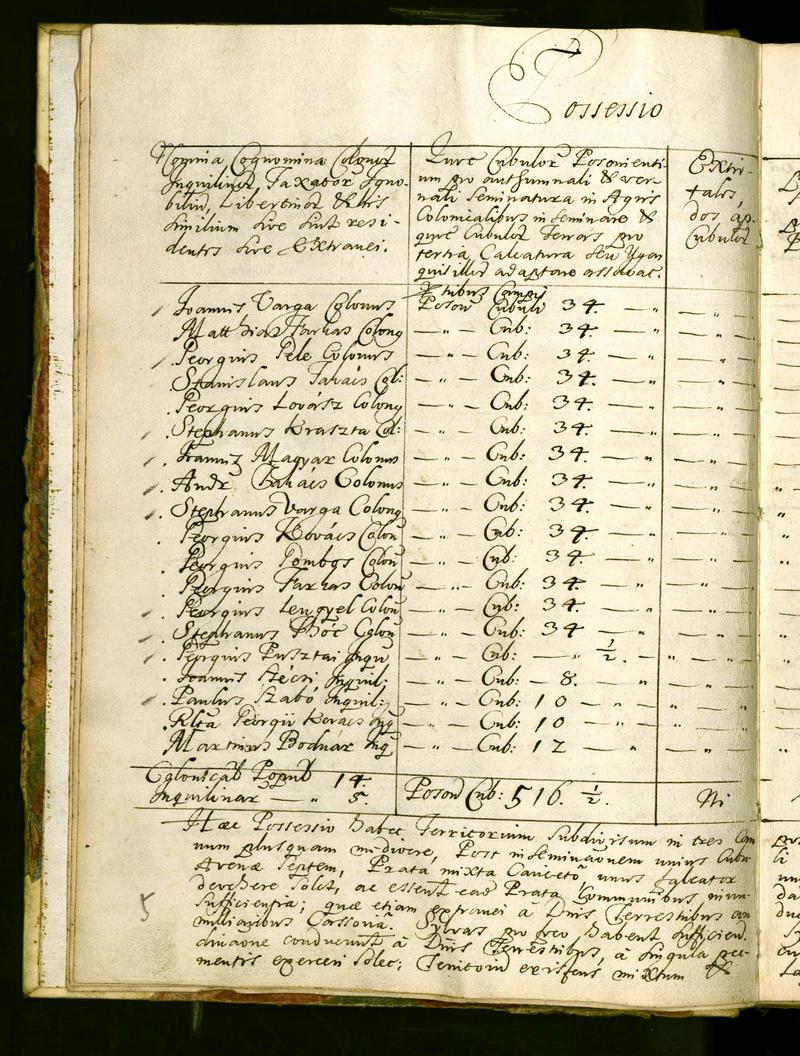 Possessio
Nomina, Cognomina Colonor
Inquilinor, Taxator Igno-
bilium, Libertinor & his
similium sive sint resi-
dentes sive Extranei.
Quve Cubulor Posoniensi-
um pro authumnali & ver-
nali Seminatura in Agris
Colonicalibus inseminare &
qve Cubulor Terras pro
tertia Calcatura seu Ugar
quis illor adaptare
Extir-
pales,
dos, ap.
Cubulor
Ioannis Varga Colonus
Poson Cubuli 34. — „
Matthias Farkas Colong — „ — Cub: 34. — „
Georgius Pele Colonus — „ — Cub: 34. — „
Stanislaus Takács Col: — „ — Cub: 34. — „
Georgius Lovász Colong — „ — Cub: 34. — „
Stephanus Kraszta Col: — „ — Cub: 34. — „
Ioannis Magyar Colonus — „ — Cub: 34. — „
Andr. Takács Colonus — „ — Cub: 34. — „
Stephanus Varga Colong — „ — Cub: 34. — „
Georgius Kovács Colon — „ — Cub: 34. — „
Georgius Gombos Colon — „ — Cub: 34. — „
Georgius Farkas Colon — „ — Cub: 34. — „
Georgius Lengyel Colon — „ — Cub: 34. — „
Stephanus Colon — „ — Cub: 34 — „
Georgius Pusztai Inqu — „ — Cub: — „ ½.
Ioannis Szécsi Inquil: — „ — Cub: — 8. — „
Paulus Szabó Inquil: — „ — Cub: 10 — „
Rlta Georgii Kovács Inq — „ — Cub: 10 — „
Martinus Bodnár Inq — „ — Cub: 12 — „
Colonical Popul 14.
Inquilinar — „ 5.
Poson Cub: 516. ½
Ni
Hæc Possessio habet Territorium subdivisum in tres Cam
num plusquam mediocre, Post inseminaonem unius Cubu
Avenæ Septem, Prata mixta unus falcator
devehere solet, ac essent ead Prata Communibus
sufficientia; quæ etiam extranei à Dnis Terrestribus
milliaribus Cassovia. Sylvas pro foco habent sufficien.
conducunt à Dnis Terrestribus, à singula
mentis exerceri solet; Territorio existens mixtum &
5